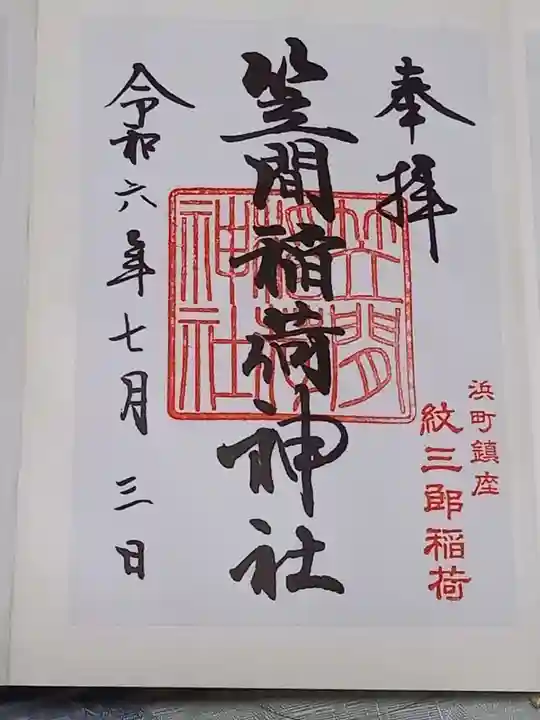 奉拝
浜町鎮座
紋三郎稲荷
笠間稲荷神社
笠間
稲荷
神社
令和六年七月三日